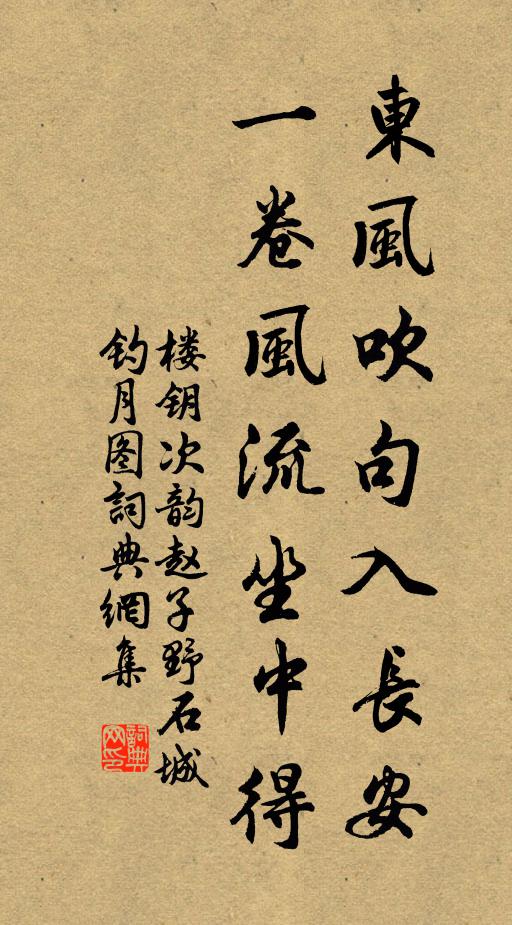 東風吹句入長安
一卷風流坐中得
楼钥次韵赵子野石城
钓月图詞典網集
詞典
网印